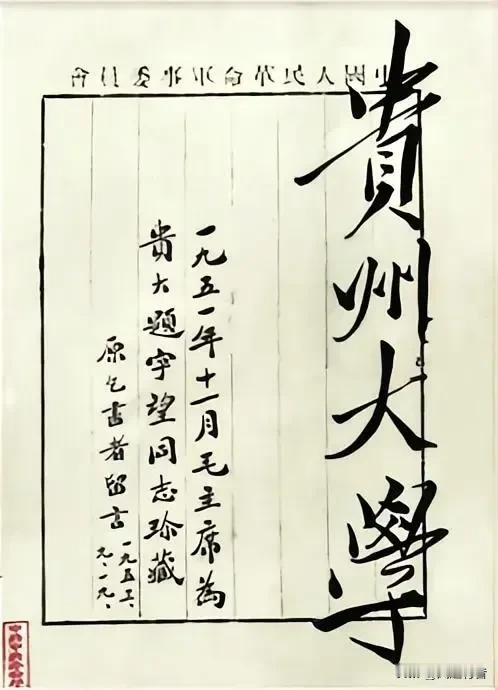 中國人民革命軍事委員會
貴州大學
一九五一年十一月毛主席為
貴大題字望同志珍藏
原乞書者留言
一九五三、
九、一九、